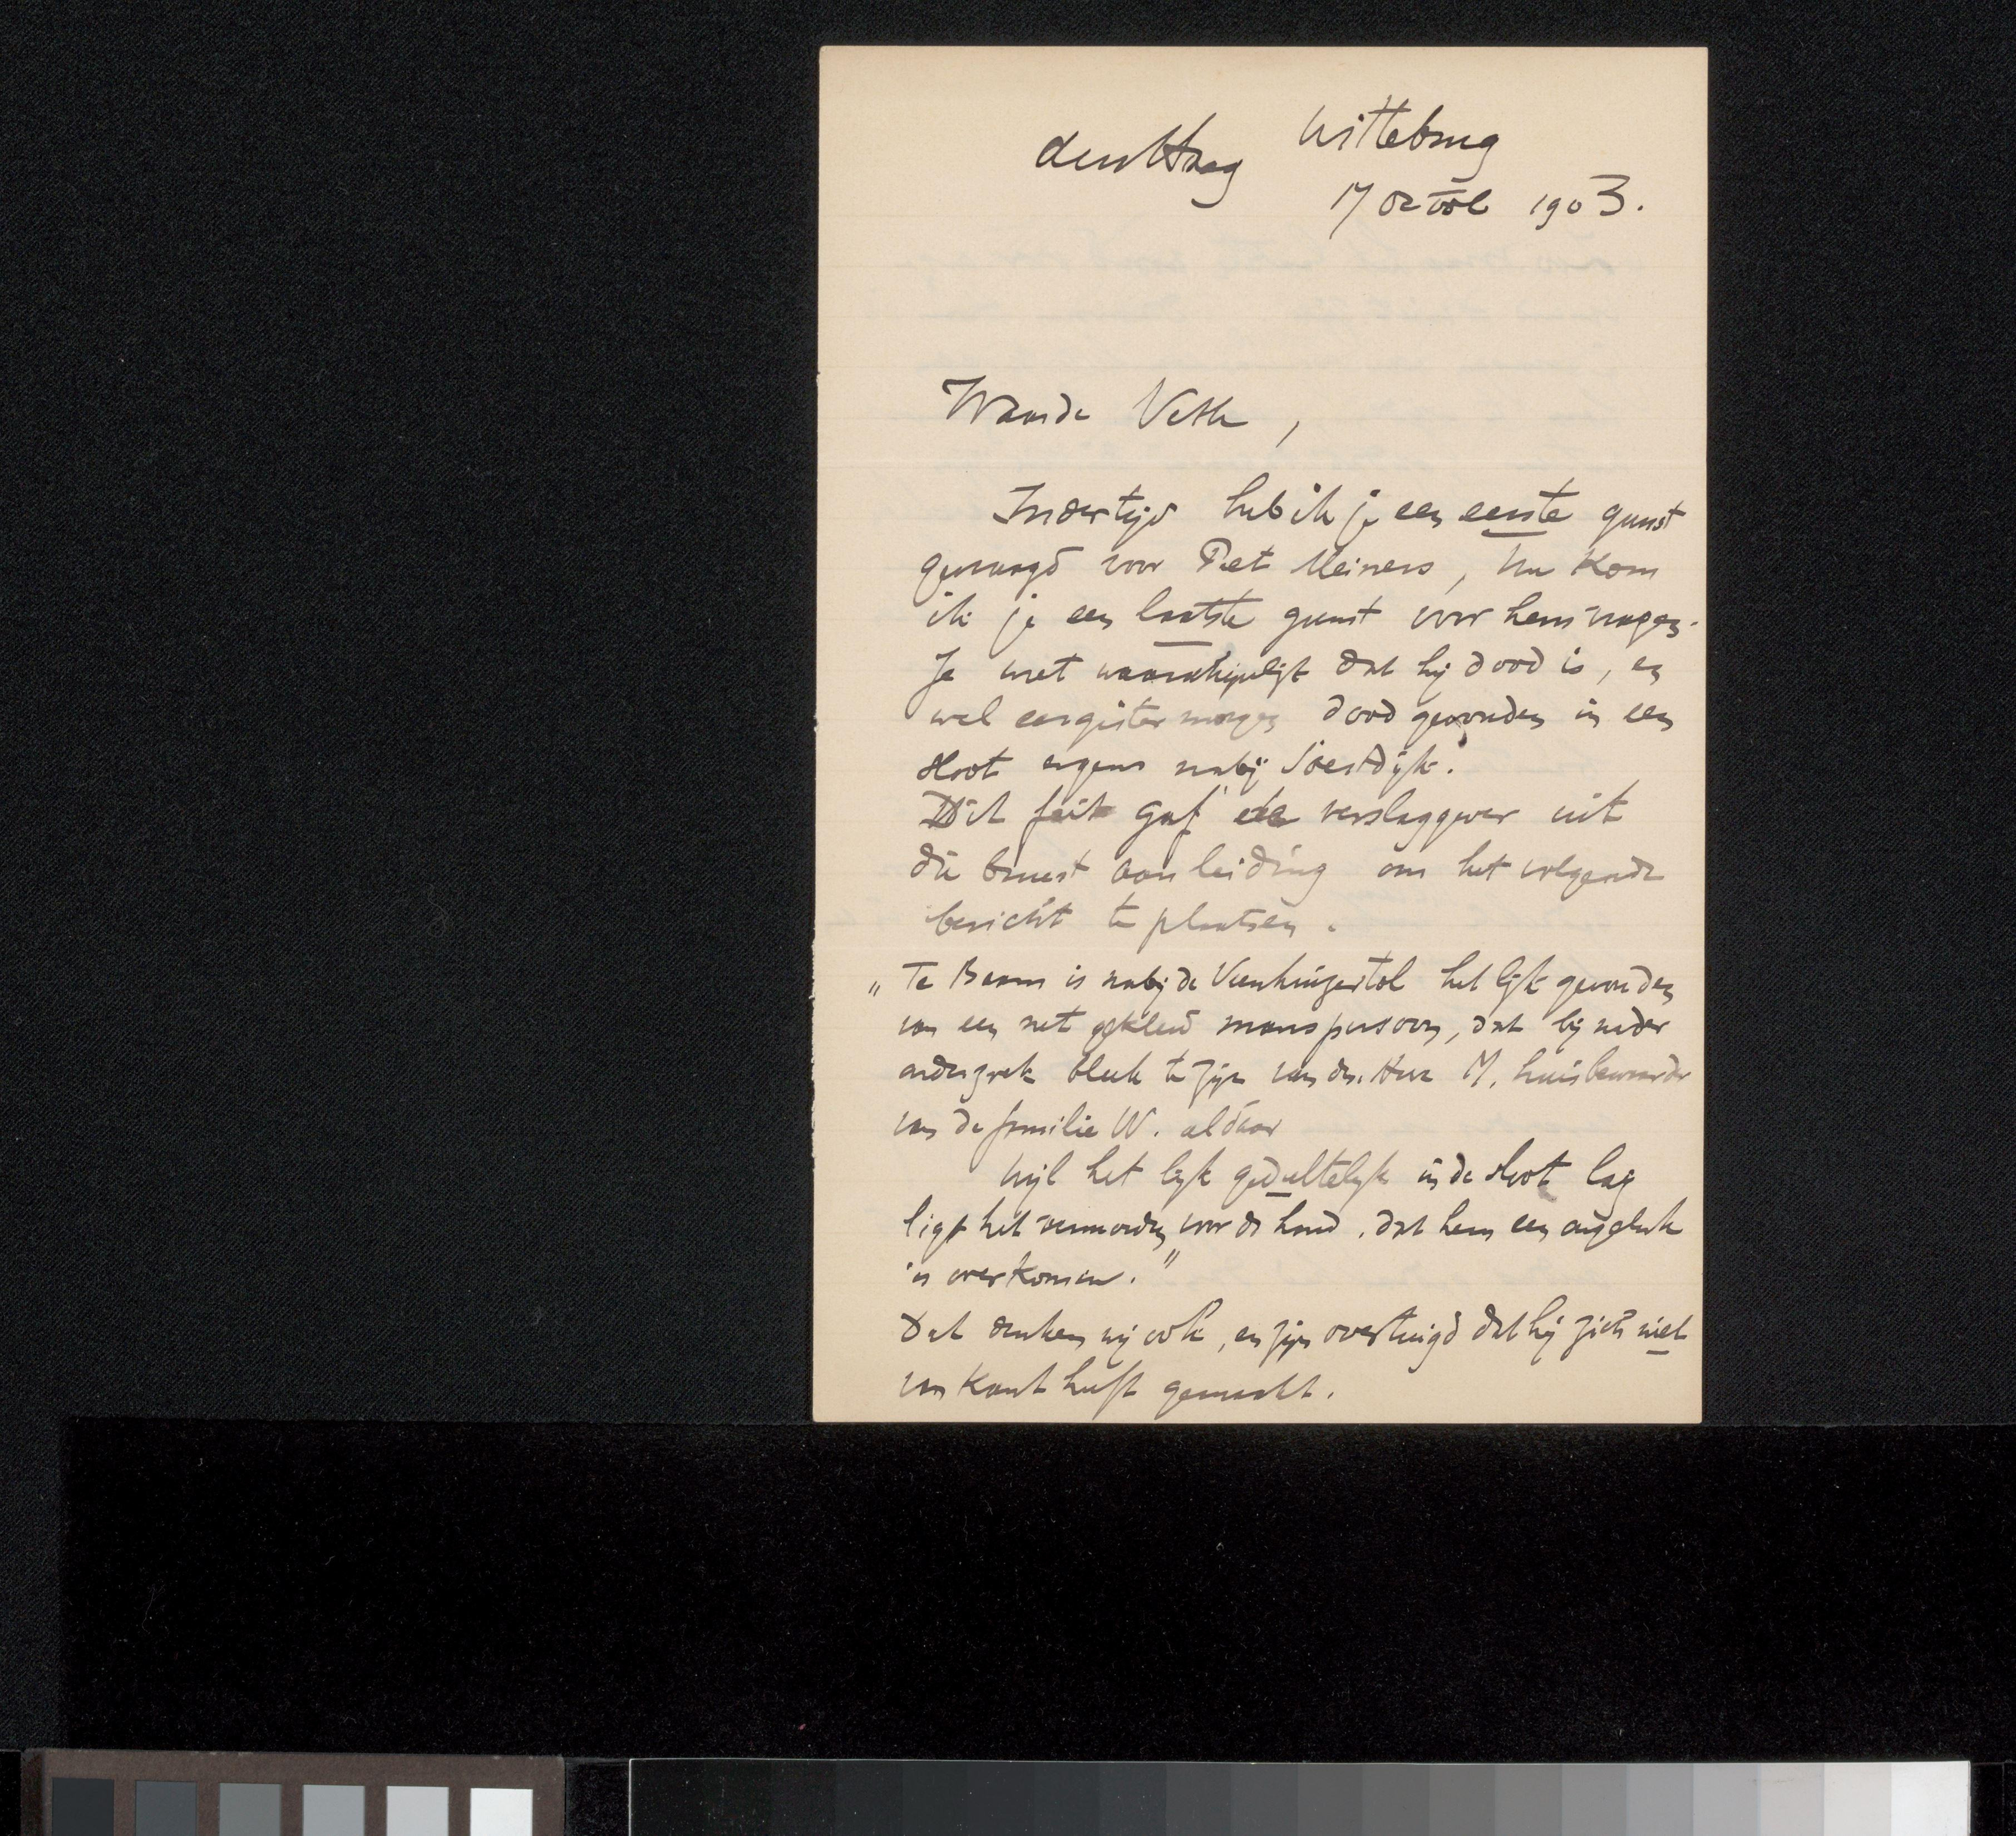 den Haag Wittebrug
17 Octob 1903.
Waarde Veth,
Indertijd heb ik je een eerste gunst
gevraagd voor Piet Meiners, nu kom
ik je een laatste gunst voor hem vragen.
Je weet waarschijnlijk dat hij dood is, en
wel eergister morgen dood gevonden in een
sloot ergens nabij Soestdijk.
Dit feit gaf de verslaggever uit
die buurt aanleiding om het volgende
bericht te plaatsen.
„Te Baarn is nabij de Vuurschertol het lijk gevonden
van een net gekleed manspersoon, dat bij nader
onderzoek bleek te zijn van den Heer M. huisbewaarder
van de familie W. aldaar
Wijl het lijk gedeeltelijk in de sloot lag
ligt het vermoeden voor de hand, dat hem een ongeluk
is overkomen."
Dat denken wij ook, en zijn overtuigd dat hij zich niet
van kant heeft gemaakt.